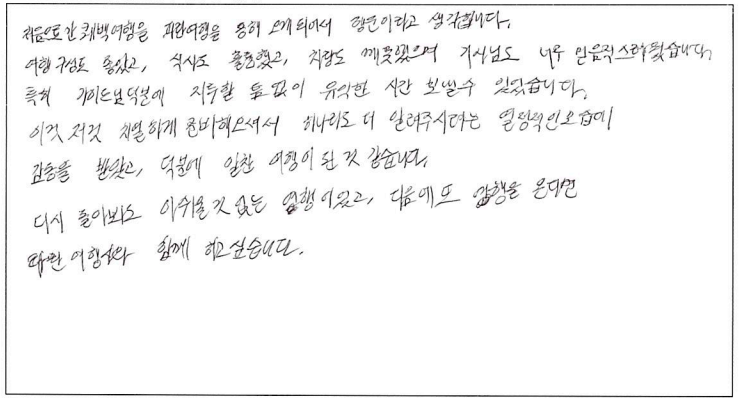 처음으로 간 퀘백여행을 파란여행을 통해 오게 되어서 행운이라고 생각합니다.
여행 구성도 좋았고, 식사도 훌륭했고, 차량도 깨끗했으며 기사님도 너무 믿음직스러웠습니다.
특히 가이드님 덕분에 지루할 틈 없이 유익한 시간 보낼 수 있었습니다.
이것 저것 치밀하게 준비해오셔서 하나라도 더 알려주시려는 열정적인 모습에
감동을 받았고, 덕분에 알찬 여행이 된 것 같습니다.
다시 돌아봐도 아쉬울 것 없는 여행이었고, 다음에 또 여행을 온다면
파란여행사와 함께 하고 싶습니다.